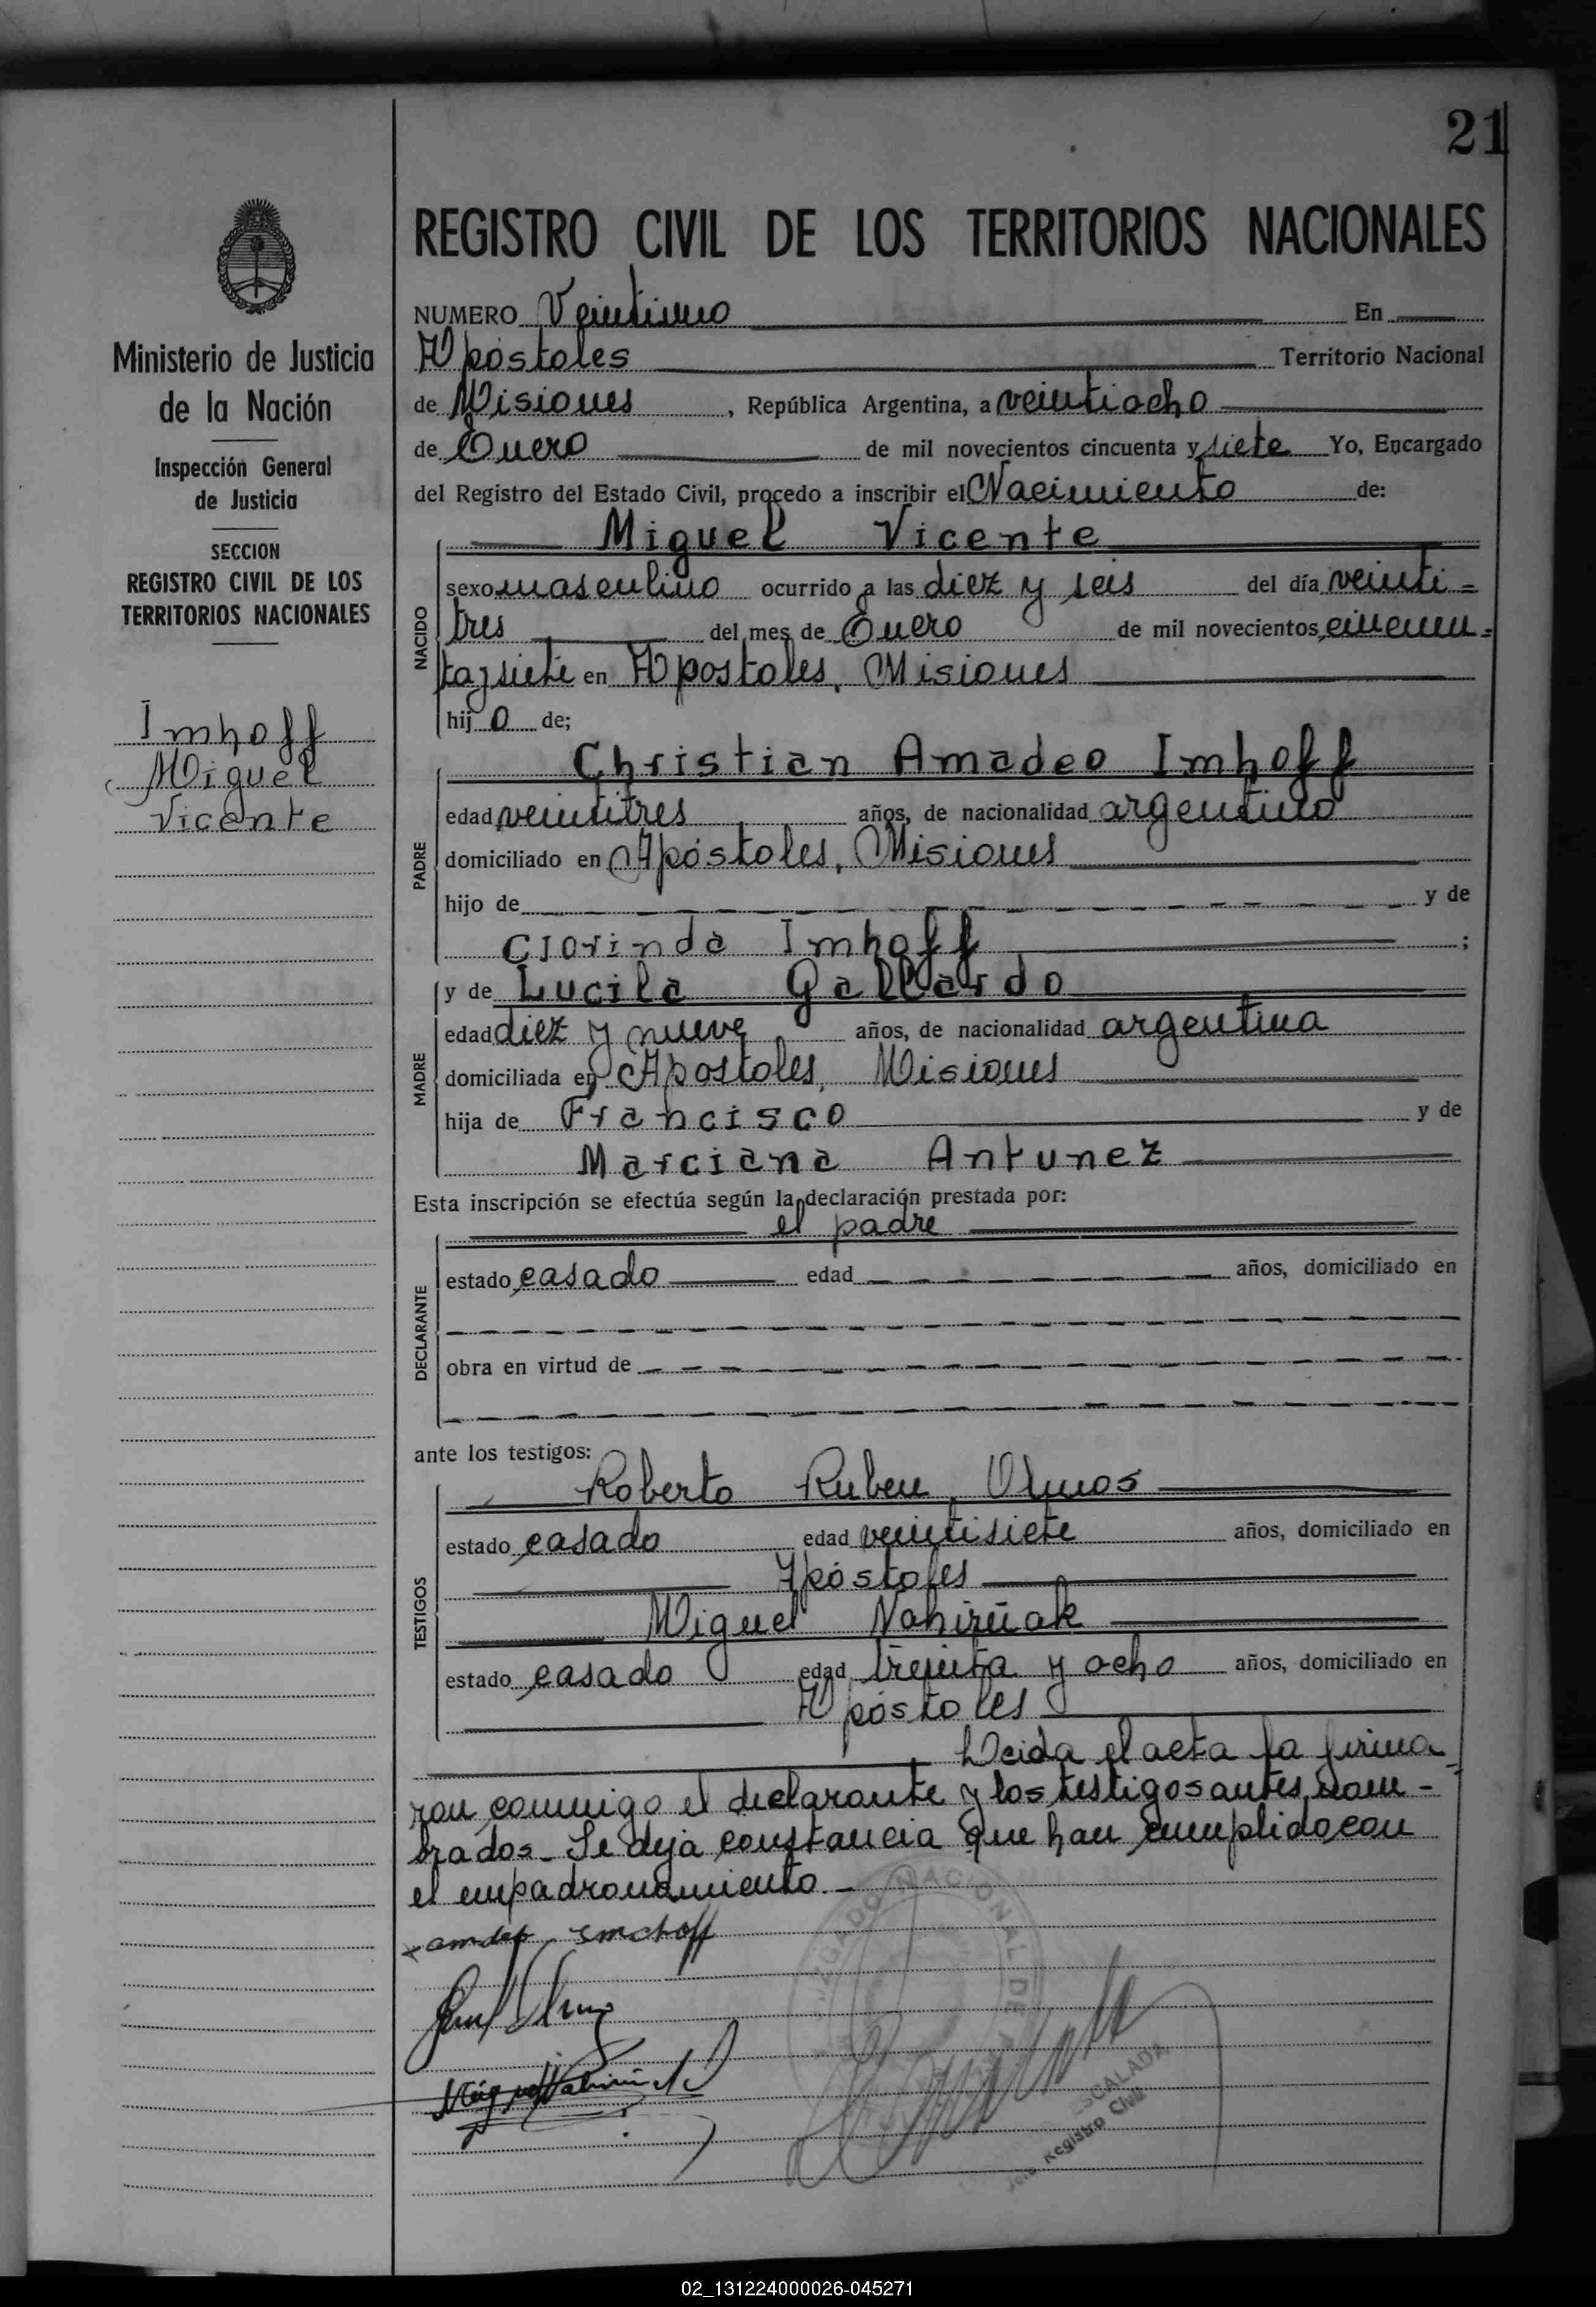 21
REGISTRO CIVIL DE LOS TERRITORIOS NACIONALES
Ministerio de Justicia
de la Nación
Inspección General
de Justicia
SECCION
REGISTRO CIVIL DE LOS
TERRITORIOS NACIONALES
Imhoff
Miguel
Vicente
NUMERO Veintiuno En
Apóstoles Territorio Nacional
de Misiones, República Argentina, a veintiocho
de Enero de mil novecientos cincuenta y siete Yo, Encargado
del Registro del Estado Civil, procedo a inscribir el Nacimiento de:
Miguel Vicente
NACIDO
sexo masculino ocurrido a las diez y seis del día veinti=
tres del mes de Enero de mil novecientos cincuen=
taysiete en Apostoles, Misiones
hijo de;
Christian Amadeo Imhoff
PADRE
edad veintitres años, de nacionalidad argentino
domiciliado en Apóstoles, Misiones
hijo de y de
Clorinda Imhoff ;
y de Lucila Gallardo
MADRE
edad diez y nueve años, de nacionalidad argentina
domiciliada en Apostoles, Misiones
hija de Francisco y de
Marciana Antunez
Esta inscripción se efectúa según la declaración prestada por:
el padre
DECLARANTE
estado casado edad años, domiciliado en
obra en virtud de
ante los testigos:
Roberto Ruben Olmos
TESTIGOS
estado casado edad veintisiete años, domiciliado en
Apóstoles
Miguel Nahirñak
estado casado edad treinta y ocho años, domiciliado en
Apóstoles
Leida el acta la firma=
ron conmigo el declarante y los testigos antes nom-
brados. Se deja constancia que han cumplido con
el empadronamiento.-
JUZGADO NACIONAL DE
ESCALADA
Jefe Registro Civil
02_131224000026-045271